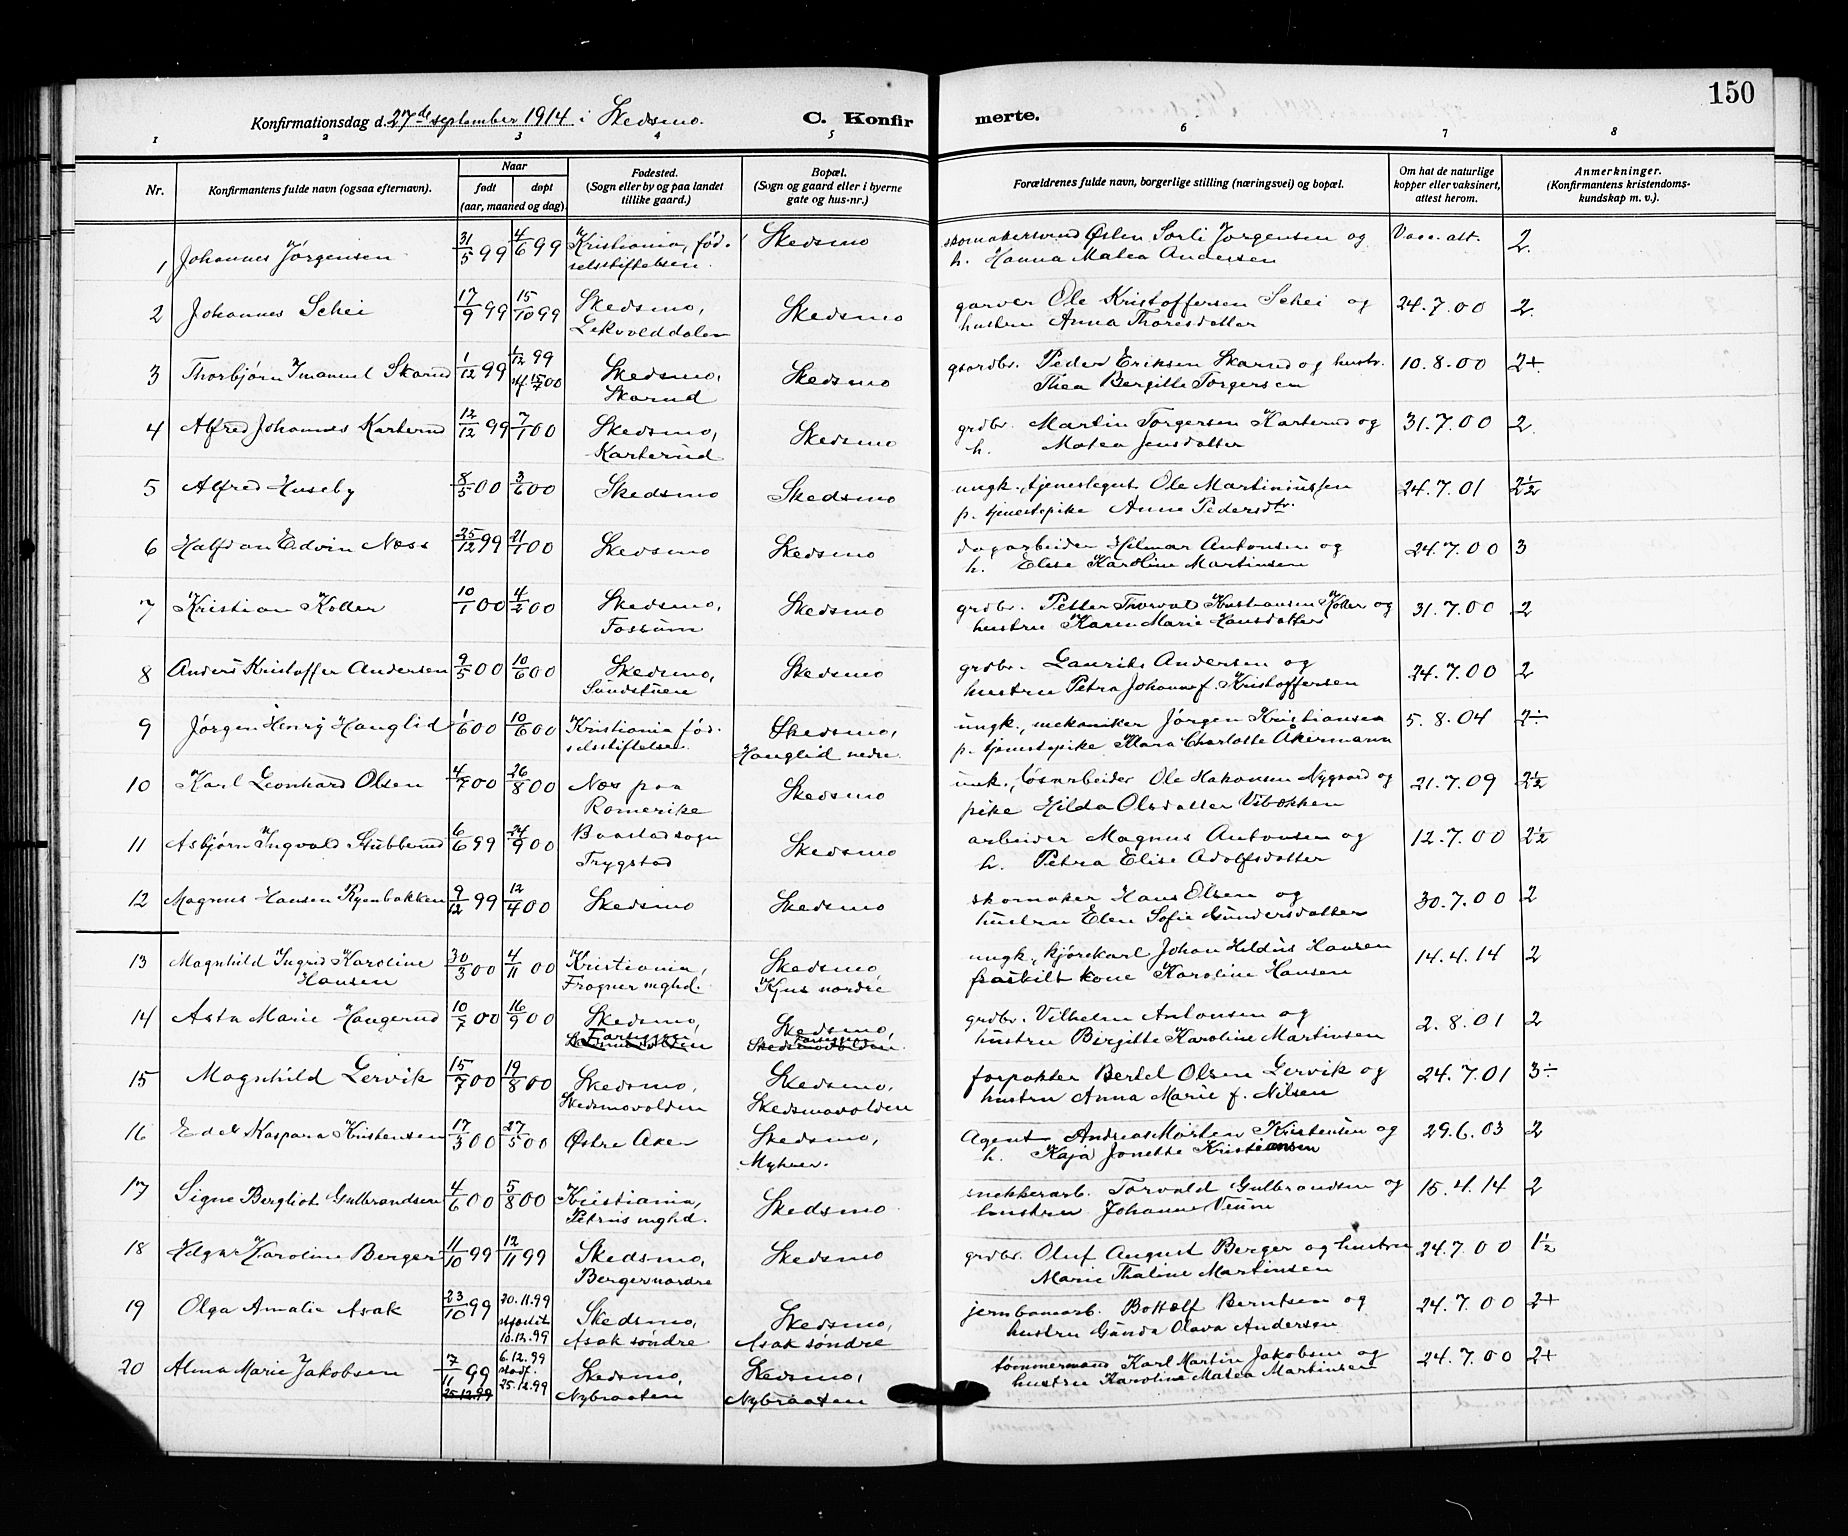 150
Konfirmationsdag d. 27de september 1914 i Skedsmo. C. Konfirmerte.
1 2 3 4 5 6 7 8
Nr. Konfirmantens fulde navn (ogsaa efternavn). Naar født døpt (aar, maaned og dag). Fødested. (Sogn eller by og paa landet tillike gaard.) Bopæl. (Sogn og gaard eller i byerne gate og hus-nr.) Forældrenes fulde navn, borgerlige stilling (næringsvei) og bopæl. Om hat de naturlige kopper eller vaksinert, attest herom. Anmerkninger. (Konfirmantens kristendomskundskap m. v.).
1 Johannes Jørgensen 31/5 99 4/6 99 Kristiania, fød- Skedsmo skomakersvend Østen Sorli Jørgensen og Vacc. att. 2
selsstiftelsen. h. Hanna Matea Andersen
2 Johannes Schei 17/9 99 15/10 99 Skedsmo, Skedsmo garver Ole Kristoffersen Schei og 24.7.00 2
Lekvolddalen hustru Anna Thoresdatter
3 Thorbjørn Imanuel Skarud 1/12 99 1/12 99 Skedsmo, Skedsmo gaardbr. Peder Eriksen Skarud og hustr. 10.8.00 2+
15/7 00 Skarud Thea Bergitte Torgersen
4 Alfred Johannes Karterud 12/12 99 7/1 00 Skedsmo, Skedsmo grdbr. Martin Torgersen Karterud og 31.7.00 2
Karterud h. Matea Jensdatter
5 Alfred Huseby 8/5 00 3/6 00 Skedsmo Skedsmo ungk., tjenestegut Ole Martiniussen 24.7.01 2½
p. tjenestepike Anne Pedersdtr.
6 Halfdan Edvin Næss 25/12 99 21/1 00 Skedsmo Skedsmo dagarbeider Hilmar Antonsen og 24.7.00 3
h. Elise Karoline Martinsen
7 Kristian Koller 10/1 00 4/2 00 Skedsmo, Skedsmo grdbr. Petter Thorvat Kristiansen Koller og 31.7.00 2
Fossum hustru Karen Marie Hansdatter
8 Anders Kristoffer Andersen 9/5 00 10/6 00 Skedsmo, Skedsmo grdbr. Laurits Andersen og 24.7.00 2
Sundstuen hustru Petra Johanne f. Kristoffersen
9 Jørgen Henry Hanglid 1/6 00 10/6 00 Kristiania fød- Skedsmo, ungk., mekaniker Jørgen Kristiansen 5.8.04 2÷
selsstiftelsen. Hanglid nedre p. tjenestepike Mara Charlotte Åkermann
10 Karl Leonhard Olsen 4/7 00 26/8 00 Nes paa Skedsmo unk., løsarbeider Ole Hakonsen Nygaard og 21.7.09 2½
Romerike pike Hilda Olsdatter Vibakken
11 Asbjørn Ingvald Stubberud 6/6 99 24/9 00 Baastad sogn Skedsmo arbeider Magnus Antonsen og 12.7.00 2½
Trygstad h. Petra Elise Adolfsdatter
12 Magnus Hansen Ryenbakken 9/12 99 12/4 00 Skedsmo Skedsmo skomaker Hans Olsen og 30.7.00 2
hustru Elen Sofie Gundersdatter
13 Magnhild Ingrid Karoline 30/3 00 4/11 00 Kristiania, Skedsmo ungk., kjørekarl Johan Hildus Hansen 14.4.14 2
Hansen Frogner mghd. Kjus nordre fraskilt kone Karoline Hansen
14 Asta Marie Haugerud 10/7 00 16/9 00 Skedsmo, Skedsmo, grdbr. Vilhelm Antonsen og 2.8.01 2
Skedsmovolden Skedsmovolden hustru Birgitte Karoline Martinsen
15 Magnhild Lervik 15/7 00 19/8 00 Skedsmo, Skedsmo, forpakter Bertel Olsen Lervik og 24.7.01 3÷
Skedsmovolden Skedsmovolden hustru Anna Marie f. Nilsen
16 Edel Kaspara Kristensen 17/3 00 27/5 00 Østre Aker Skedsmo, Agent Andreas Morten Kristensen og 29.6.03 2
Myhrer. h. Kaja Jonette Kristiansen
17 Signe Bergliot Gulbrandsen 4/6 00 5/8 00 Kristiania, Skedsmo snekkerarb. Torvald Gulbrandsen og 15.4.14 2
Petrus mghd. hustru Johanne Veum
18 Edgar Karoline Berger 11/10 99 12/11 99 Skedsmo, Skedsmo grdbr. Oluf August Berger og hustru 24.7.00 1½
Berger nordre Marie Thaline Martinsen
19 Olga Amalie Asak 23/10 99 20.11.99 Skedsmo, Skedsmo, jernbanearb. Bottolf Berntsen og 24.7.00 2+
stadf. 10.12.99 Asak søndre Asak søndre hustru Gunda Olava Andersen
20 Alma Marie Jakobsen 7/11 99 6.12.99 Skedsmo, Skedsmo, tømmermand Karl Martin Jakobsen og 24.7.00 2+
25.12.99 stadf. 25.12.99 Nybraaten Nybraaten hustru Karoline Matea Martinsen